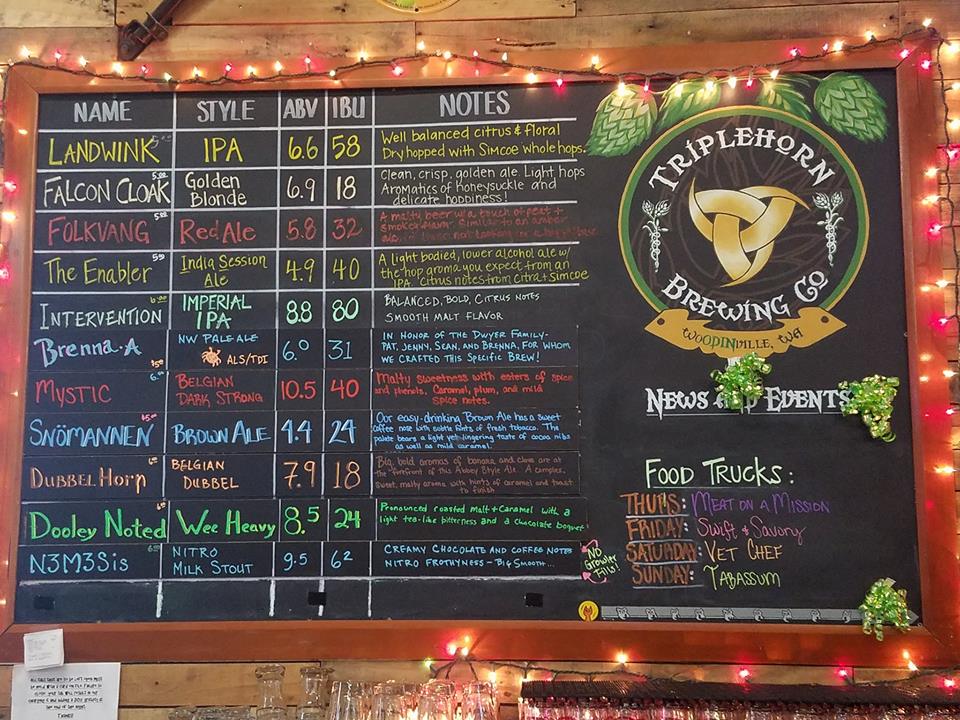 NAME STYLE ABV IBU NOTES
LANDWINK IPA 6.6 58 Well balanced citrus & floral
Dry hopped with Simcoe whole hops.
FALCON CLOAK 5.00 Golden Blonde 6.9 18 Clean, crisp, golden ale. Light hops
Aromatics of honeysuckle and
delicate hoppiness!
FOLKVANG 5.00 Red Ale 5.8 32 A malty beer w/ a touch of peat +
The Enabler 5.00 India Session Ale 4.9 40 A light bodied, lower alcohol ale w/
the hop aroma you expect from an
IPA. Citrus notes from Citra & Simcoe
INTERVENTION 6.00 IMPERIAL IPA 8.8 80 BALANCED, BOLD, CITRUS NOTES
SMOOTH MALT FLAVOR
Brenna.A $5.00 NW PALE ALE ALS/TDI 6.0 31 IN HONOR OF THE DWYER FAMILY-
PAT, JENNY, SEAN, AND BRENNA, FOR WHOM
WE CRAFTED THIS SPECIFIC BREW!
MYSTIC 6.00 BELGIAN DARK STRONG 10.5 40 Malty sweetness with esters of spice
and phenols. Caramel, plum, and mild
spice notes.
SNÖMANNEN $5.00 BROWN ALE 4.4 24 Our easy-drinking Brown Ale has a sweet
coffee nose with subtle hints of fresh tobacco. The
palate bears a light yet lingering taste of cocoa nibs
as well as mild caramel.
DUBBEL Horn BELGIAN DUBBEL 7.9 18 Big, bold aromas of banana and clove are at
the forefront of this Abbey Style Ale. A complex,
sweet, malty aroma with hints of caramel and toast
to finish
Dooley Noted Wee Heavy 8.5 24 Pronounced roasted malt + Caramel with a
light tea-like bitterness and a chocolate boquet
N3M3Sis NITRO MILK STOUT 9.5 62 CREAMY CHOCOLATE AND COFFEE NOTES
NITRO FROTHYNESS - BIG SMOOTH...
NO
Growler
Fills!
TRIPLEHORN
BREWING CO
WOODINVILLE, WA
NEWS AND EVENTS
FOOD TRUCKS:
THURS: MEAT ON A MISSION
FRIDAY: Swift & Savory
SATURDAY: VET CHEF
SUNDAY: TABASSUM